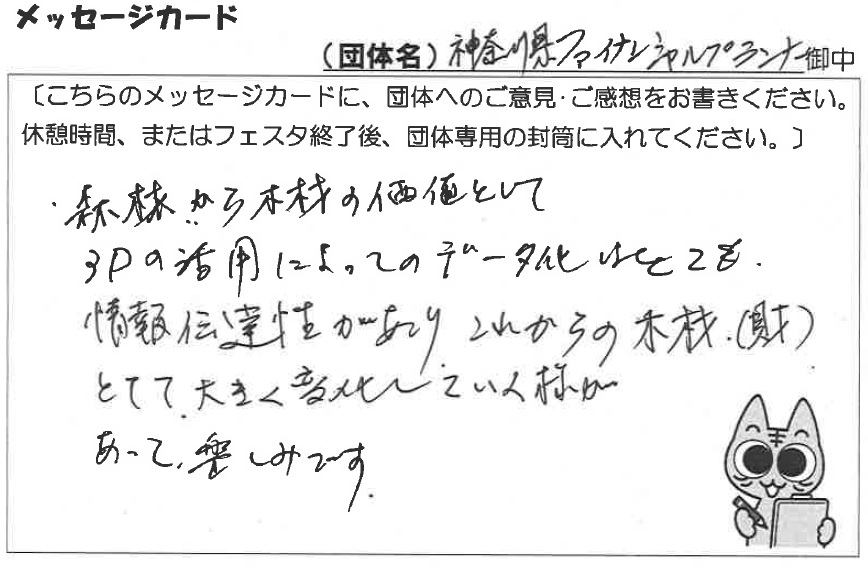 メッセージカード
(団体名) 神奈川県ファイナンシャルプランナー御中
〔こちらのメッセージカードに、団体へのご意見・ご感想をお書きください。
休憩時間、またはフェスタ終了後、団体専用の封筒に入れてください。〕
・森林から木材の価値として
3Dの活用によってのデータ化はとても、
情報伝達性があり これからの木材、(財)
とても大きく変化していく様が
あって、楽しみです。